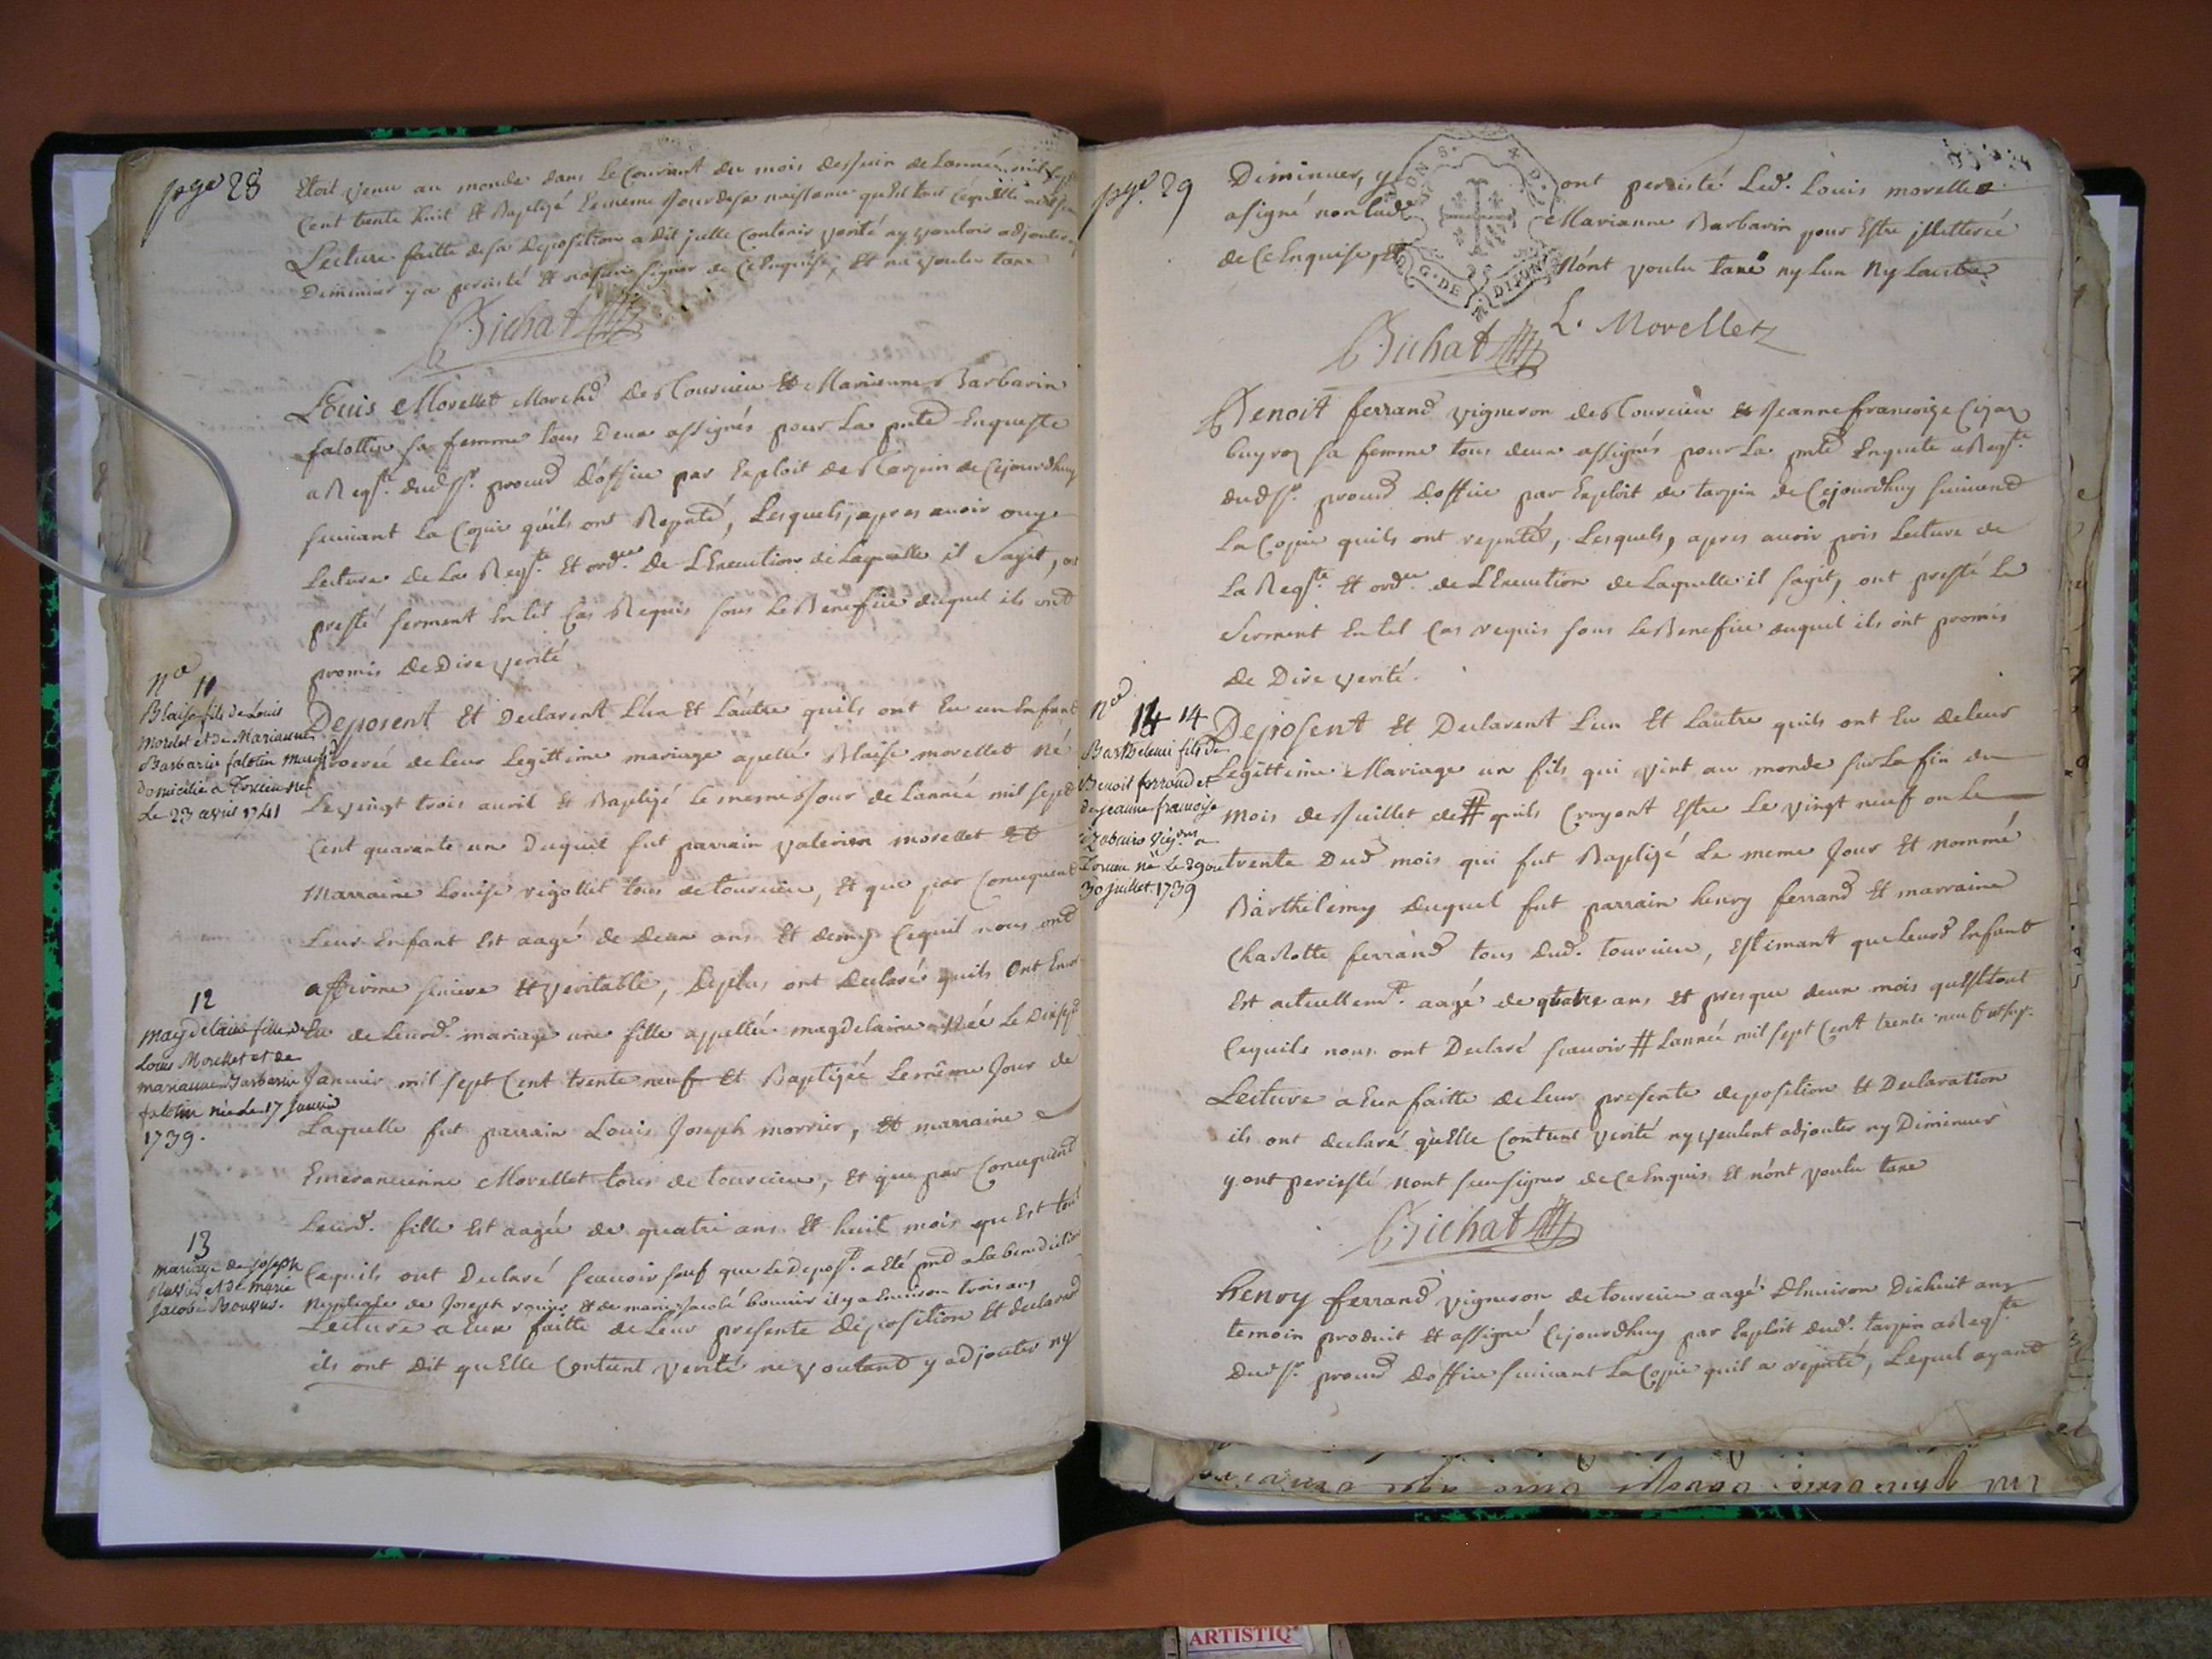 pge 28
Etoit venu au monde dans le Courant du mois de Juin de Lannée mil sept
Cent trente huit Et Baptizé Lememe Jour de sa naissance qu'Est tout Cequ'elle
Lecture faitte de sa Deposition a Dit jcelle Contenir verité ny vouloir adjouter
Diminuer y a persisté Et signer de ce Enquise, Et na voulu taxe
Bichat
Louis Morellet Marchd de Tourcieu Et Marianne Barbarin
falottin sa femme tous Deux assignés pour La pnte Enqueste
a Reqte. dud sr. procurd d'office par Exploit de Tarpin de Cejourdhuy
suivant La Copie qu'ils ont Repnté, Lesquels, apres avoir ouy
Lecture de La Reqte. Et ordce De L'Execution de Laquelle il Sagit, on
presté serment En tel Cas Requis sous Le Benefice duquel ils ont
promis de Dire verité
No 11
Blaise fils de Louis
Morelet et de Marianne
Barbarin falotin march
domicilié a Tourcieu né
Le 23 avril 1741
Deposent Et Declarent L'un Et L'autre quils ont Eu un Enfant
procreé de Leur Legittime mariage apellé Blaise morellet Né
Le vingt trois avril Et Baptizé Le meme Jour de Lanneé mil sept
Cent quarante un Duquel fut parrain valerien morellet Et
Marraine Louise rigollet tous de tourcieu, Et que par Consequent
Leur Enfant Est aagé de Deux ans Et demy Cequil nous ont
affirme sincere Et veritable, Deplus ont Declarés quils Ont Encor
12
magdelaine fille de
Louis Morellet et de
marianne Barbarin
falotin née le 17 Janvier
1739.
Eu de Leurd. mariage une fille appelleé magdelaine Neé Le Dixsept
Janvier mil sept Cent trente neuf Et Baptizeé Lemême Jour de
Laquelle fut parrain Louis Joseph morrier, Et marraine
Emerancienne Morellet tous de tourcieu, Et que par Consequent
Leurd. fille Est aageé de quatre ans Et huit mois que Est tout
13
mariage de joseph
et de marie
Jacobé
Cequils ont Declaré scauoir sauf que Le depost. a Eté pnt a La benediction
Nuptiale de Joseph Et de marie Jacobé il y a Environ trois ans
Lecture a Eux faitte de Leur presente Deposition Et declarant
ils ont dit qu'Elle Contient verité ne voulant y adjouter ny
pge. 29
Diminuer, y ont persisté Led. Louis morellet
a signé non lad. Marianne Barbarin pour Estre jlletterée
de Ce Enquise, Et N'ont voulu taxe ny Lun Ny Lautre
L. Morellet
Bichat
Benoit ferrand vigneron de Tourcieu Et Jeanne francoize
sa femme tous deux assignés pour La pnte Enquete a Reqte.
dud sr. procurd d'office par Exploit de tarpin de Cejourdhuy suivand
La Copie quils ont repnté, Lesquels, apres avoir pris Lecture de
La Reqte. Et ordce de L'Execution de Laquelle il sagit, ont presté Le
Serment En tel Cas requis sous Le Benefice duquel ils ont promis
de Dire verité.
No. 14 14
Barthelemi fils de
Benoit ferrand et
de jeanne francoise
vigron a
Tourcieu né Le 29 ou
30 juillet 1739
Deposent Et Declarent Lun Et Lautre quils ont Eu de leur
Legittime Mariage un fils qui vint au monde sur La fin du
mois de Juillet de # quils Croyent Estre Le vingt neuf ou Le
trente Dud. mois qui fut Baptizé Le meme Jour Et nommé
Barthelemy duquel fut parrain henry ferrand Et marraine
Charlotte ferrand tous dud. tourcieu, Estimant que Leurd Enfant
Est actuellemt. aagé de quatre ans Et presque deux mois qu'Esttout
Cequils nous ont Declaré scauoir # Lanneé mil sept Cent trente neuf
Lecture a Eux faitte de Leur presente deposition Et Declaration
ils ont declaré qu'Elle Contient verité ny veulent adjouter ny Diminuer
y ont persisté nont sçeu signer de Ce Enquis Et n'ont voulu taxe
Bichat
henry ferrand vigneron de tourcieu aagé d'Environ Dixhuit ans
temoin produit Et assigné Cejourdhuy par Exploit dud. tarpin a Reqte
dud sr. procurd d'office suivant La Copie quil a repnté, Lequel ayant
ARTISTIQ